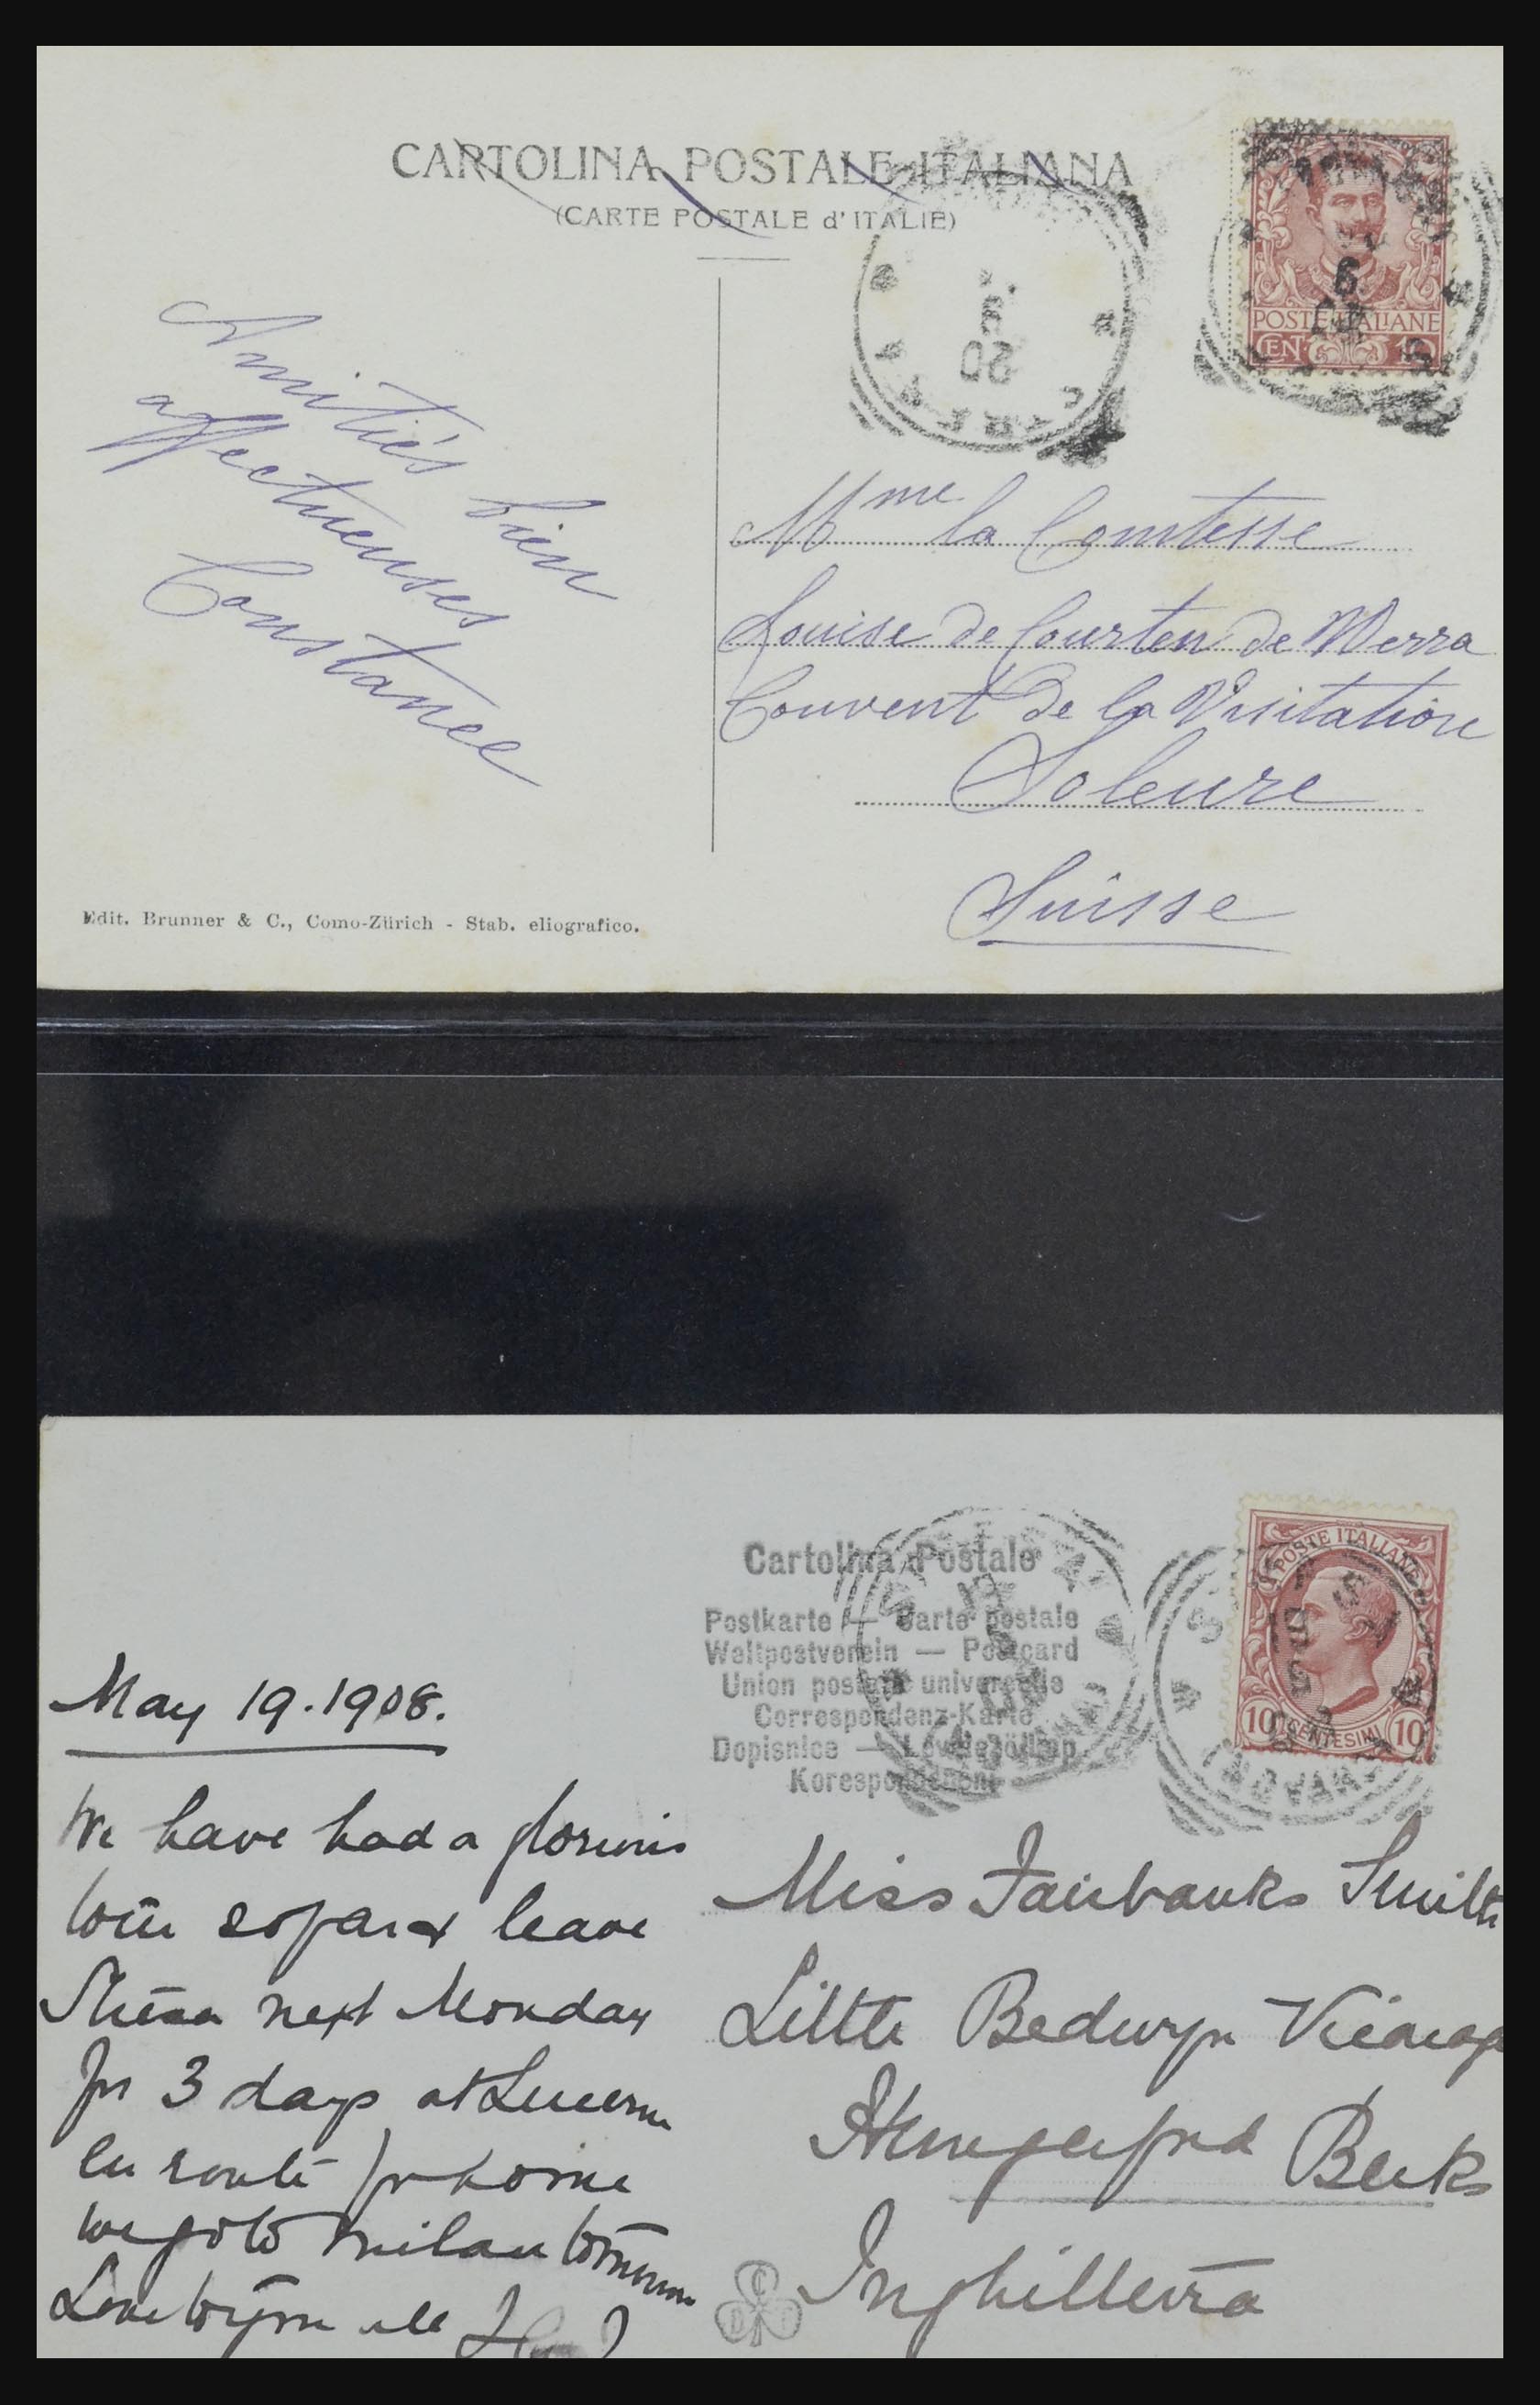 CARTOLINA POSTALE ITALIANA
(CARTE POSTALE d'ITALIE)
POSTE ITALIANE
CEN. 10
6
Amitiés bien
affectueuses
Constance
Mme la Comtesse
Louise de Courten de Werra
Couvent de la Visitation
Soleure
Suisse
Edit. Brunner & C., Como-Zürich - Stab. eliografico.
POSTE ITALIANE
10 CENTESIMI 10
Cartolina Postale
Postkarte — Carte postale
Weltpostverein — Postcard
Union postale universelle
Correspondenz-Karte
Dopisnice — Levelezölap
May 19.1908.
We have had a glorious
tour so far & leave
next Monday
for 3 days at Lucerne
en route for home
we go to Milan
Love to you all
Miss Fairbanks Smith
Little Bedwyn Vicarage
Hungerford Berks
Inghilterra